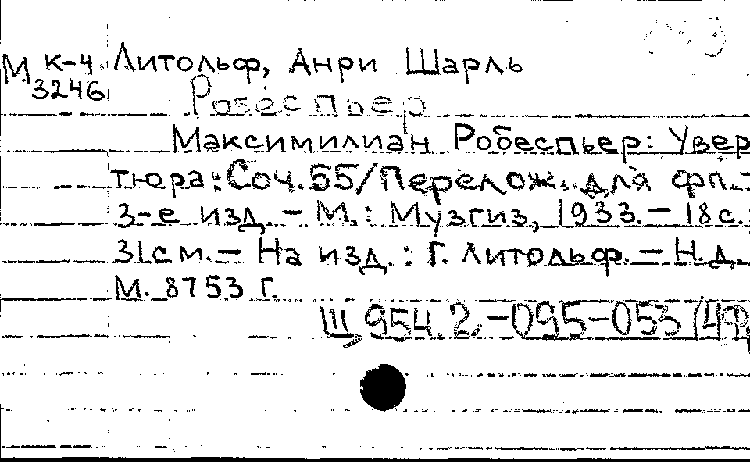 М к-4 Литольф, Анри Шарль
3246 Робеспьер
Максимилиан Робеспьер: Увер
тюра: Соч. 55/Перелож. для фп. –
3-е изд. – М.: Музгиз, 1933. – 18 с.;
31 см. – На изд.: Г. Литольф. – Н.д.
М. 8753 г.
Щ 954.2-095-053